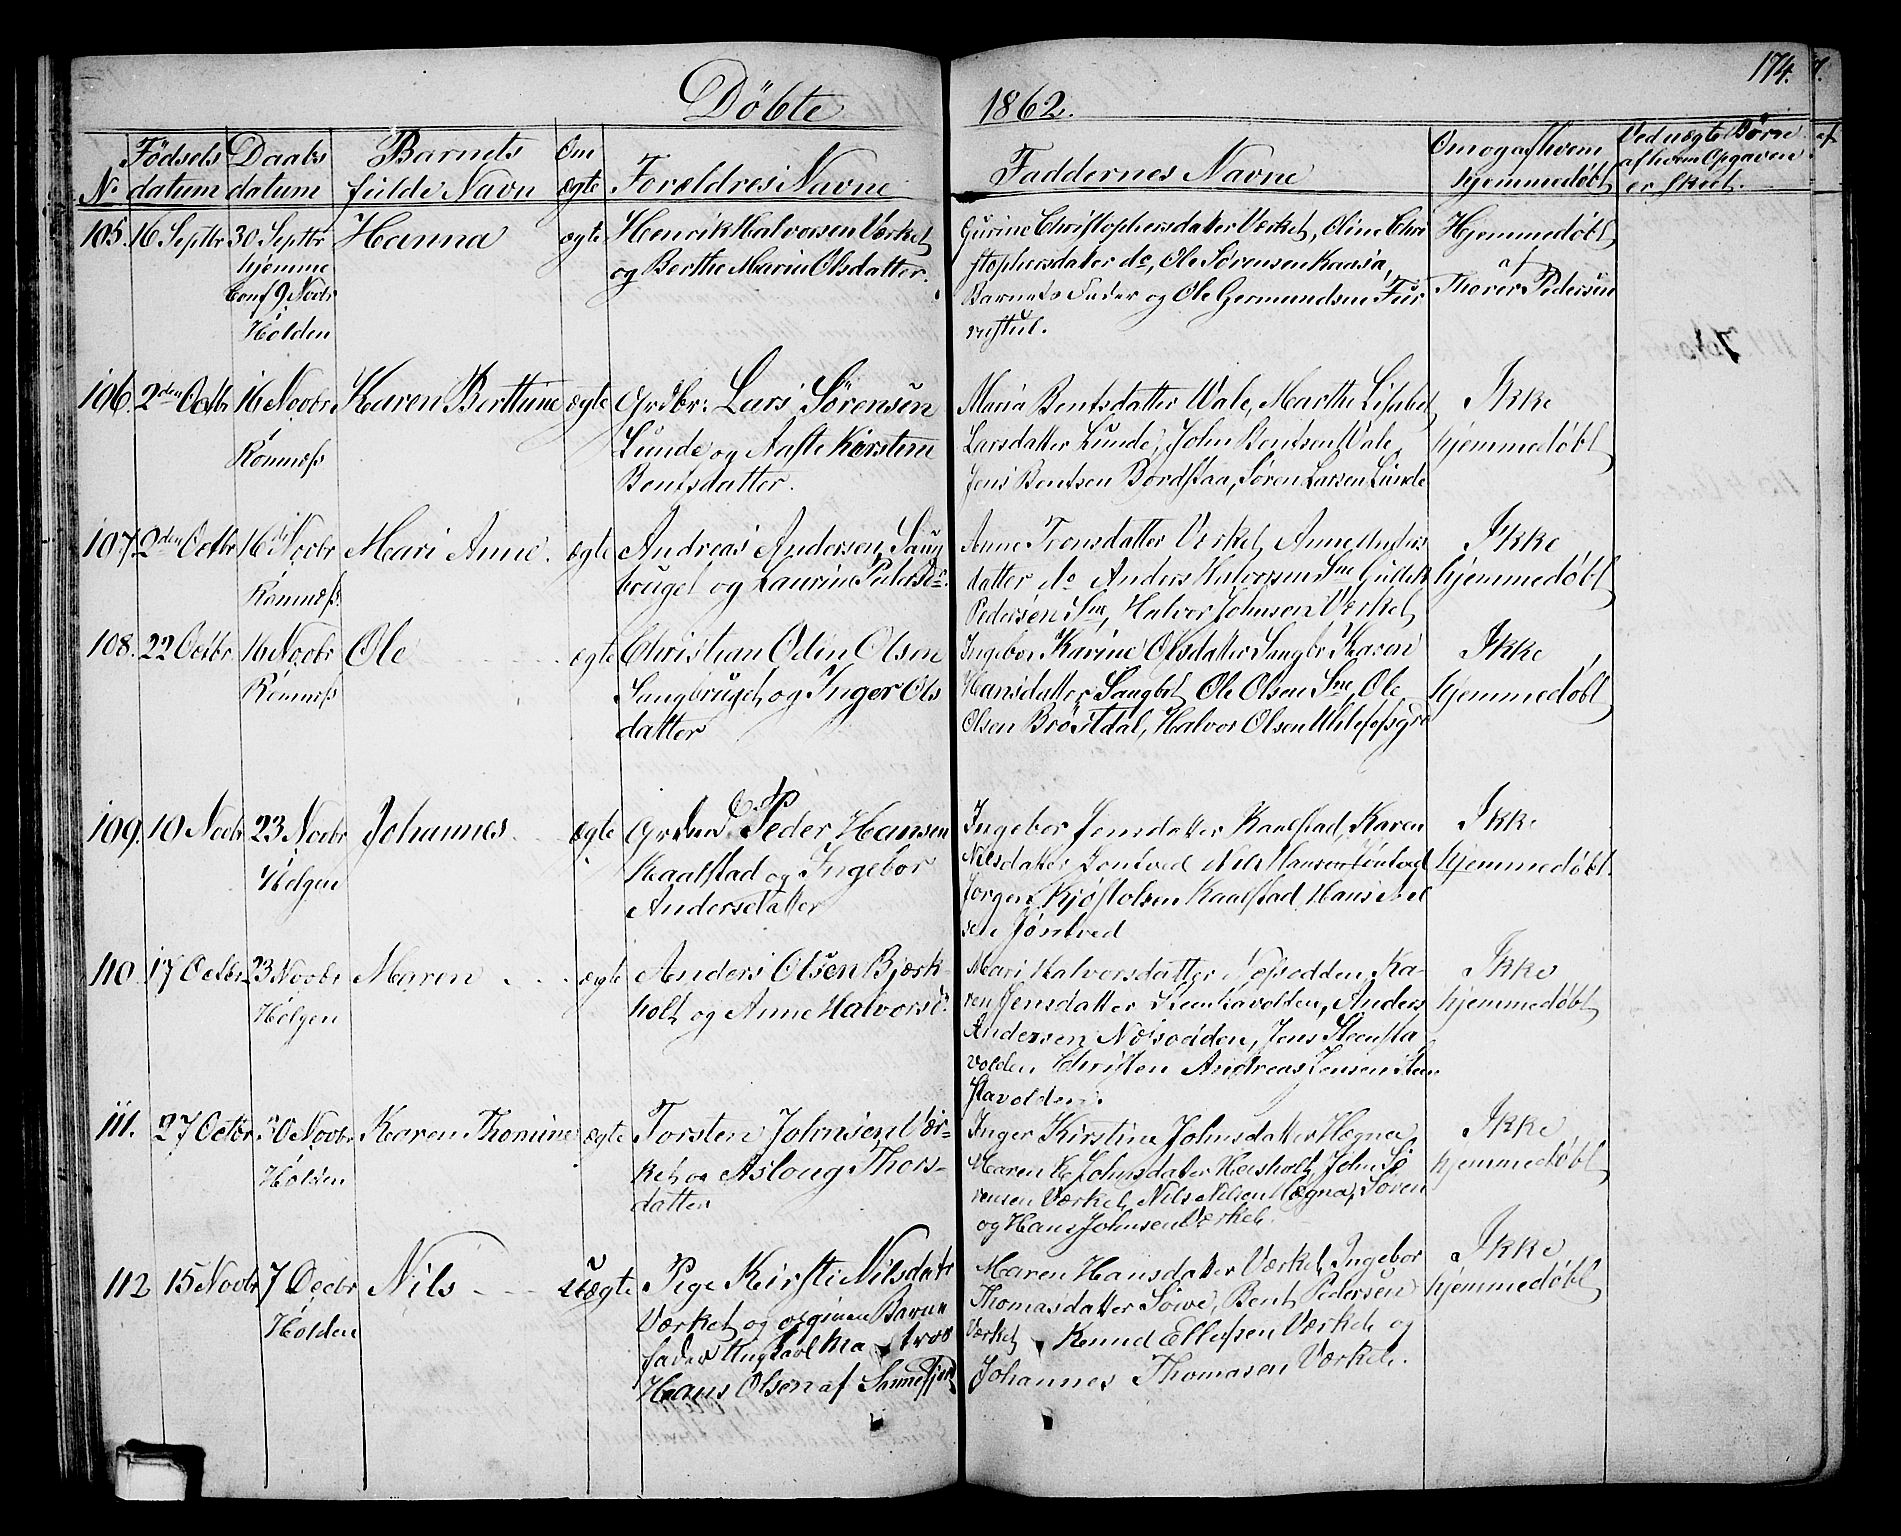 174.
Döbte
1862.
No
Födsels datum
Daabs datum
Barnets fulde Navn
Om ægte
Forældres Navne
Faddernes Navne
Om og af hvem hjemmedøbt
Ved uægte Børn af hvem Opgaven er skeet.
105. 16 Septbr 30 Septbr Hanna ægte Henrik Halvorsen Værket
hjemme
og Berthe Marie Olsdatter.
Conf 9 Novbr
Holden
Gurine Christophersdatter Værket, Oline Chri
stophersdater do, Ole Sørensen Kaasa,
Barnets Fader og Ole Germundsen Fur
ustul.
Hjemmedøbt
af
Thorer Pedersen
106. 2den Octbr 16 Novbr Karen Berttine ægte Grdbr: Lars Sörensen
Lunde og Aaste Kirstine
Romnæs
Bentsdatter.
Maria Bentsdatter Vale, Marthe Lisabet
Larsdatter Lunde, John Bentsen Vale
Jens Bentsen Bordstaa, Søren Larsen Lunde
Ikke
hjemmedøbt
107. 2den Octbr 16 Novbr Mari Anne. ægte Andreas Andersen Saug
bruget og Laurine Peders Dr.
Romnæs
Anne Tronsdatter Værket, Anne Anders
datter do Anders Halvorsen Sme Gulleik
Pedersen Sme, Halvor Johnsen Værket
Ikke
hjemmedøbt
108. 22 Octbr 16 Novbr Ole ægte Christian Odin Olsen
Saugbruget og Inger Ols
Romnæs
datter
Ingebor Karine Olsdatter Saugbr Karen
Hansdatter Saugbt Ole Olsen Sme, Ole
Olsen Bröstdal, Halvor Olsen Ulefossgrd
Ikke
hjemmedøbt
109. 10 Novbr 23 Novbr Johannes ægte Peder Hansen
Kaalstad og Ingebor
Helgen
Andersdatter
Ingebor Jensdatter Kaalstad, Karen
Nilsdatter Jontved Nils Hansen Jøntved
Jorgen Kjøstolsen Kaalstad Hans Niel
sen Jøntved
Ikke
hjemmedøbt.
110. 17 Octbr 23 Novbr Maren ægte Anders Olsen Bjærk-
holt og Anne Halvorsdr
Helgen
Mari Halvorsdatter Næsodden, Ka-
ren Jensdatter Steenstavolden, Anders
Andersen Næsodden, Jens Steensta
volden Christen Andreas Jensen Steen
stavolden.
Ikke
hjemmedøbt
111. 27 Octbr 30 Novbr Karen Thomine ægte Torsten Johnsen Vær-
ket og Asloug Thors-
Holden
datter
Inger Kirstine Johnsdatter Hægna
Maren K Johnsdatter Heisholt, John Sö
rensen Værket, Nils Nilsen Hægna, Søren
og Hans Johnsen Værket.
Ikke
hjemmedøbt
112 15 Novbr 7 Decbr Nils uægte Pige Kirsti Nilsdatr
Holden
Værket og opgiven Barne
fader Ungkarl Ma tros
Hans Olsen af Sannefjord
Maren Hansdatter Værket, Ingebor
Thomasdatter Sowe, Bent Pedersen
Værket Knud Ellefsen Værket og
Johannes Thomasen Værket.
Ikke
hjemmedøbt